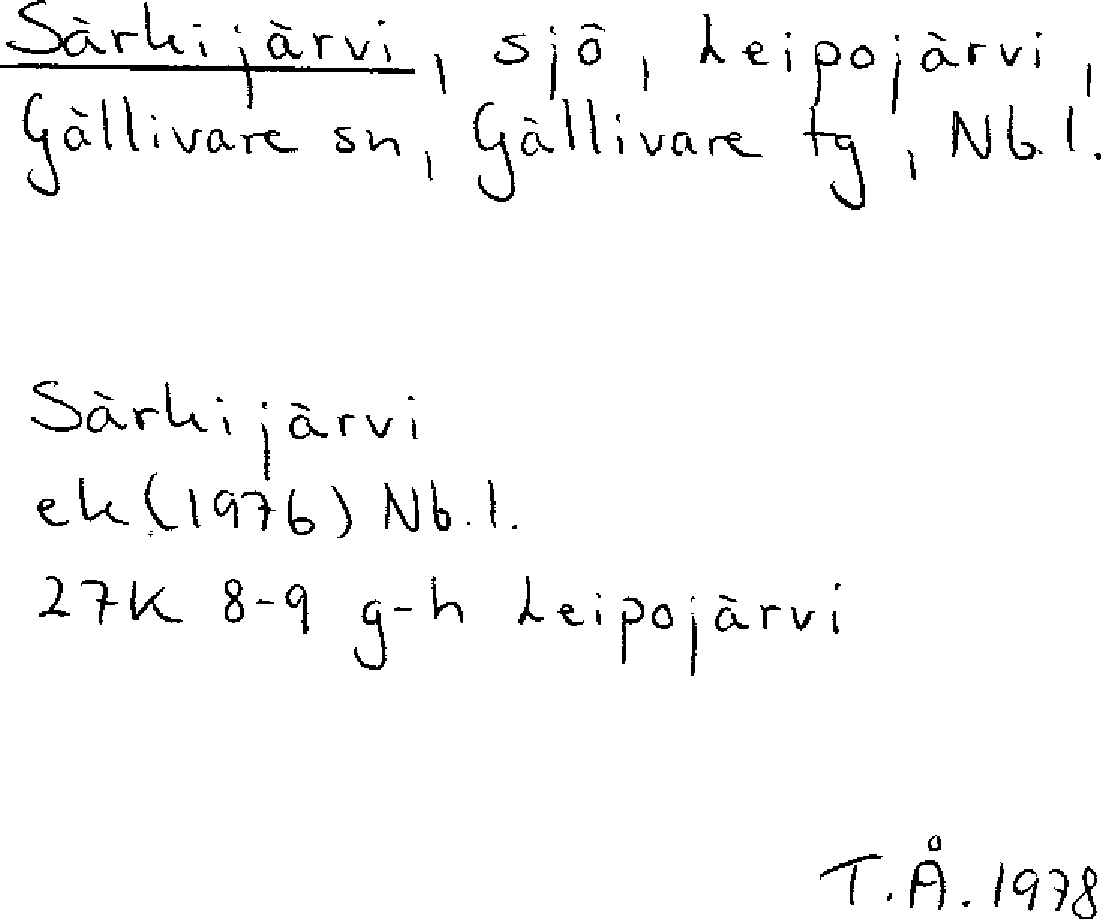 Särkijärvi, sjö, Leipojärvi,
Gällivare sn, Gällivare tg, Nb.l.
Särkijärvi
ek (1976) Nb.l.
27K 8-9 g-h Leipojärvi
T.Å. 1978